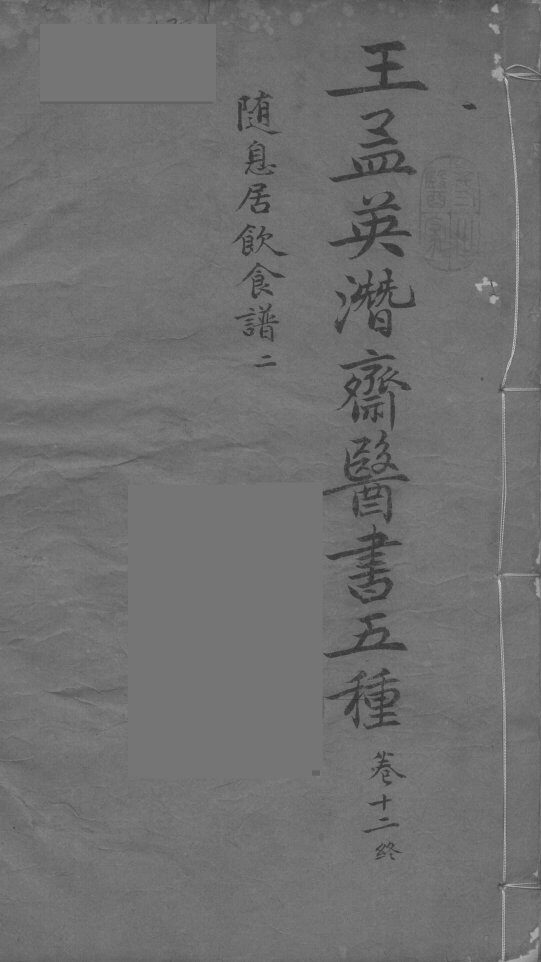 王孟英潛齋醫書五種 卷十二終
随息居飲食譜 二